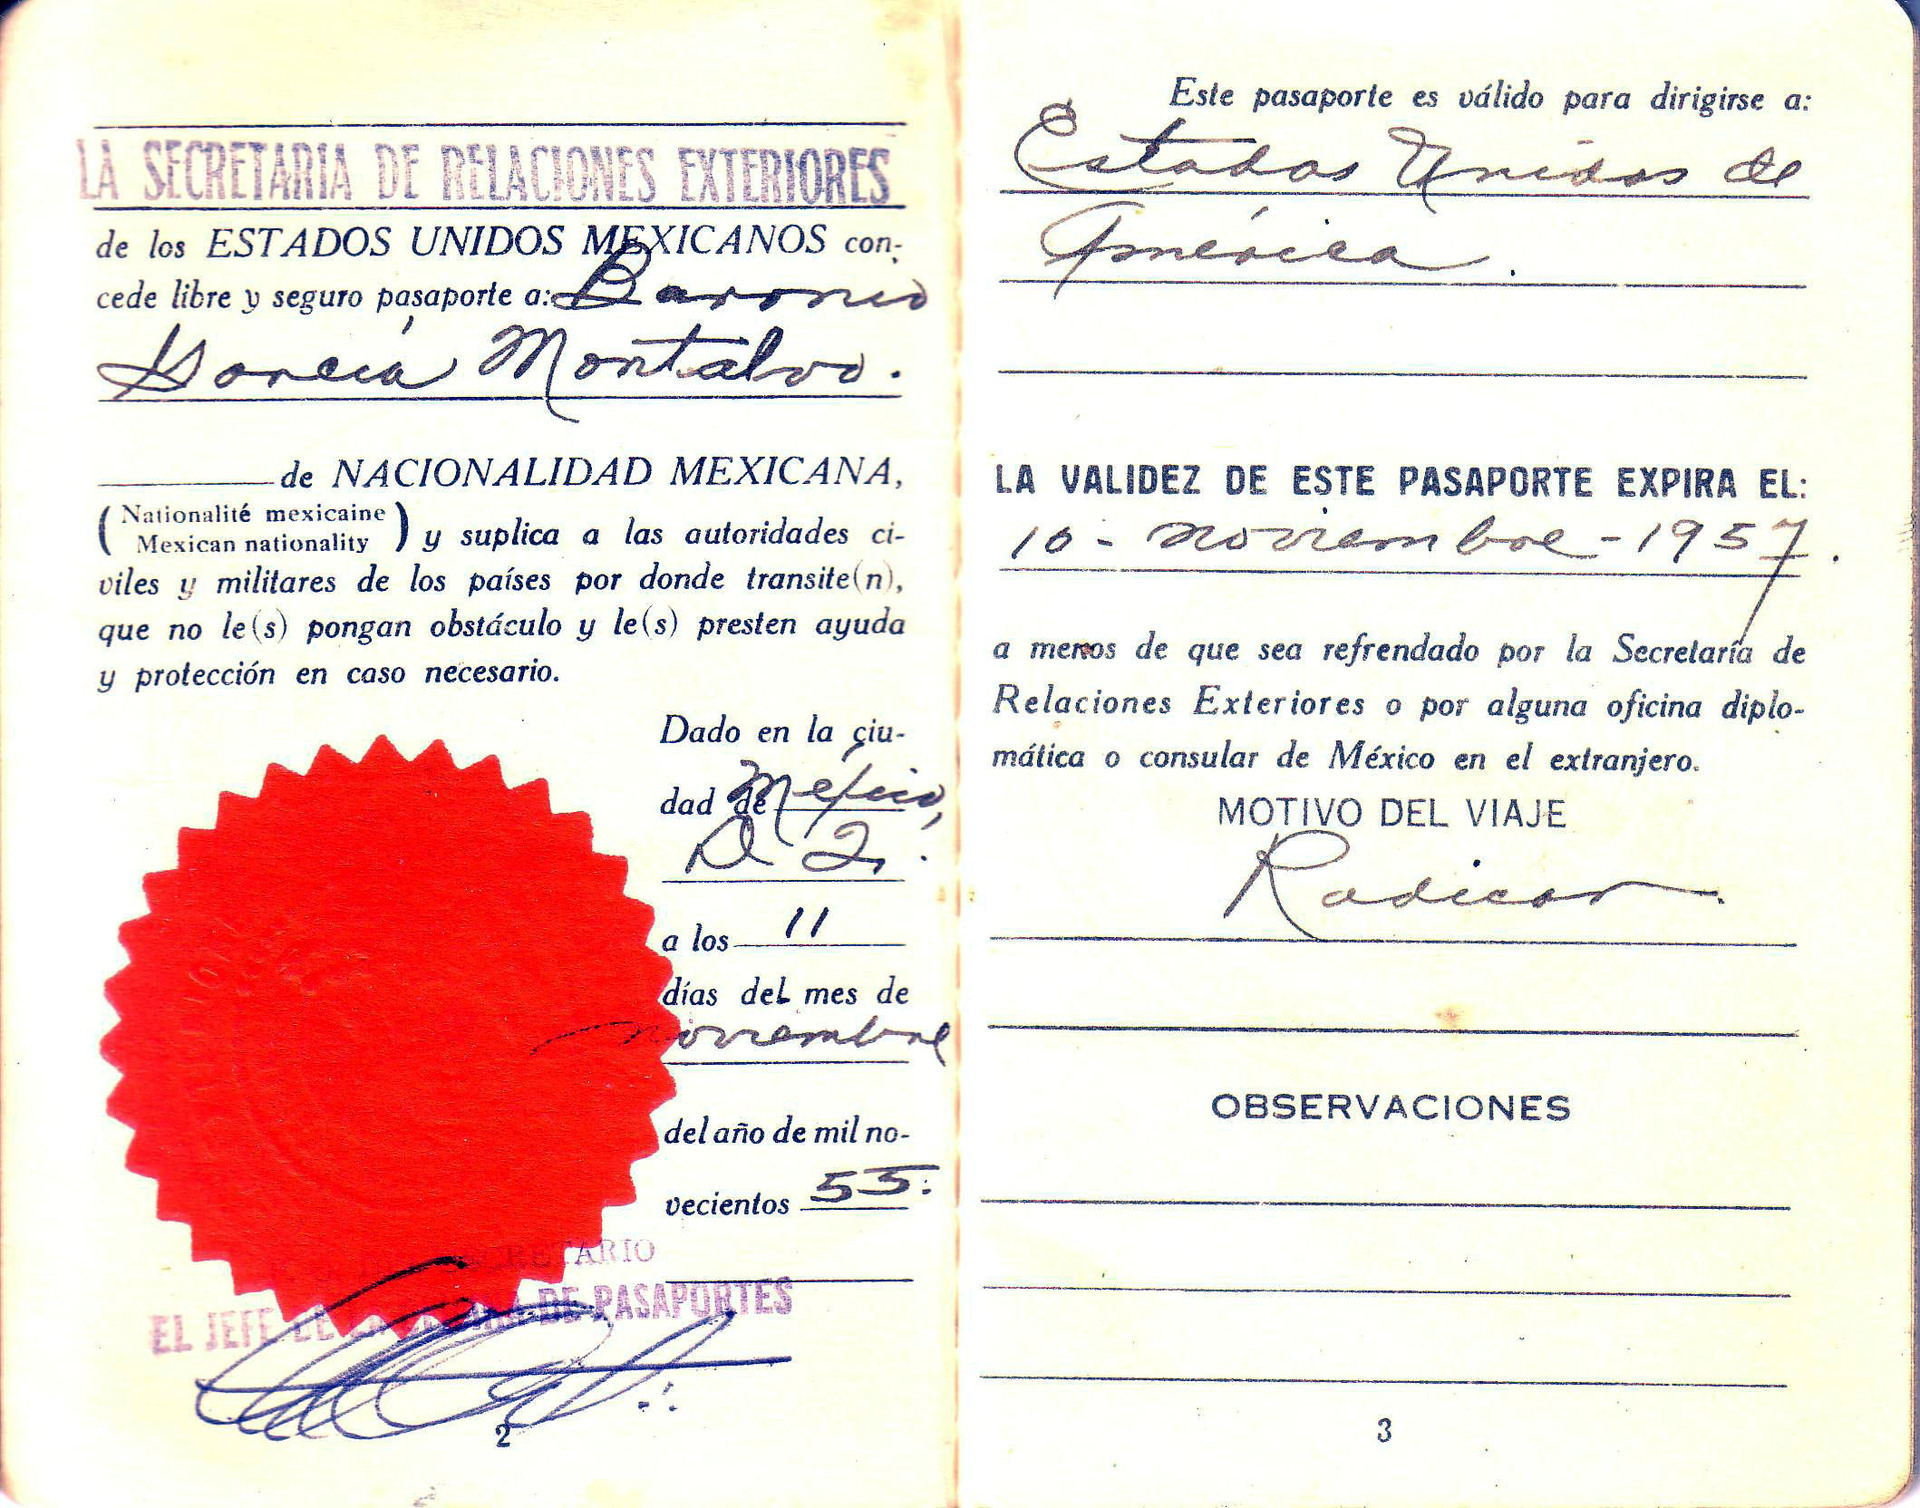 LA SECRETARIA DE RELACIONES EXTERIORES
de los ESTADOS UNIDOS MEXICANOS con-
cede libre y seguro pasaporte a: Baronio
García Montalvo.
de NACIONALIDAD MEXICANA,
(Nationalité mexicaine
Mexican nationality) y suplica a las autoridades ci-
viles y militares de los países por donde transite(n),
que no le(s) pongan obstáculo y le(s) presten ayuda
y protección en caso necesario.
Dado en la ciu-
dad de México,
D. F.
a los 11
días del mes de
noviembre
del año de mil no-
vecientos 55.
SECRETARIO
EL JEFE DE LA OFICINA DE PASAPORTES
2
Este pasaporte es válido para dirigirse a:
Estados Unidos de
América.
LA VALIDEZ DE ESTE PASAPORTE EXPIRA EL:
10 - noviembre - 1957.
a menos de que sea refrendado por la Secretaría de
Relaciones Exteriores o por alguna oficina diplo-
mática o consular de México en el extranjero.
MOTIVO DEL VIAJE
Radicar.
OBSERVACIONES
3